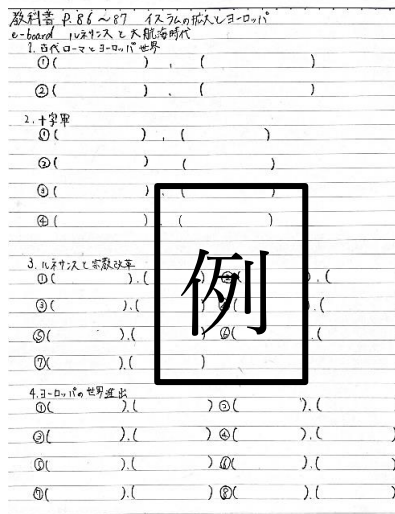 教科書 P.86～87 イスラムの拡大とヨーロッパ
e-board ルネサンスと大航海時代
1.古代ローマとヨーロッパ世界
①(　　　),(　　　)
②(　　　),(　　　)
2.十字軍
①(　　　),(　　　)
②(　　　)(　　　)
③(　　　),(　　　)
④(　　　),(　　　)
3.ルネサンスと宗教改革
①(　　　).(　　　) ②(　　　).(
③(　　　).(　　　).(
⑤(　　　).(　　　) ⑥(　　　).(
⑦(　　　).(　　　)
例
4.ヨーロッパの世界進出
①(　　　).(　　　) ②(　　　).(
③(　　　).(　　　) ④(　　　).(　　　)
⑤(　　　).(　　　) ⑥(　　　).(　　　)
⑦(　　　).(　　　) ⑧(　　　).(　　　)